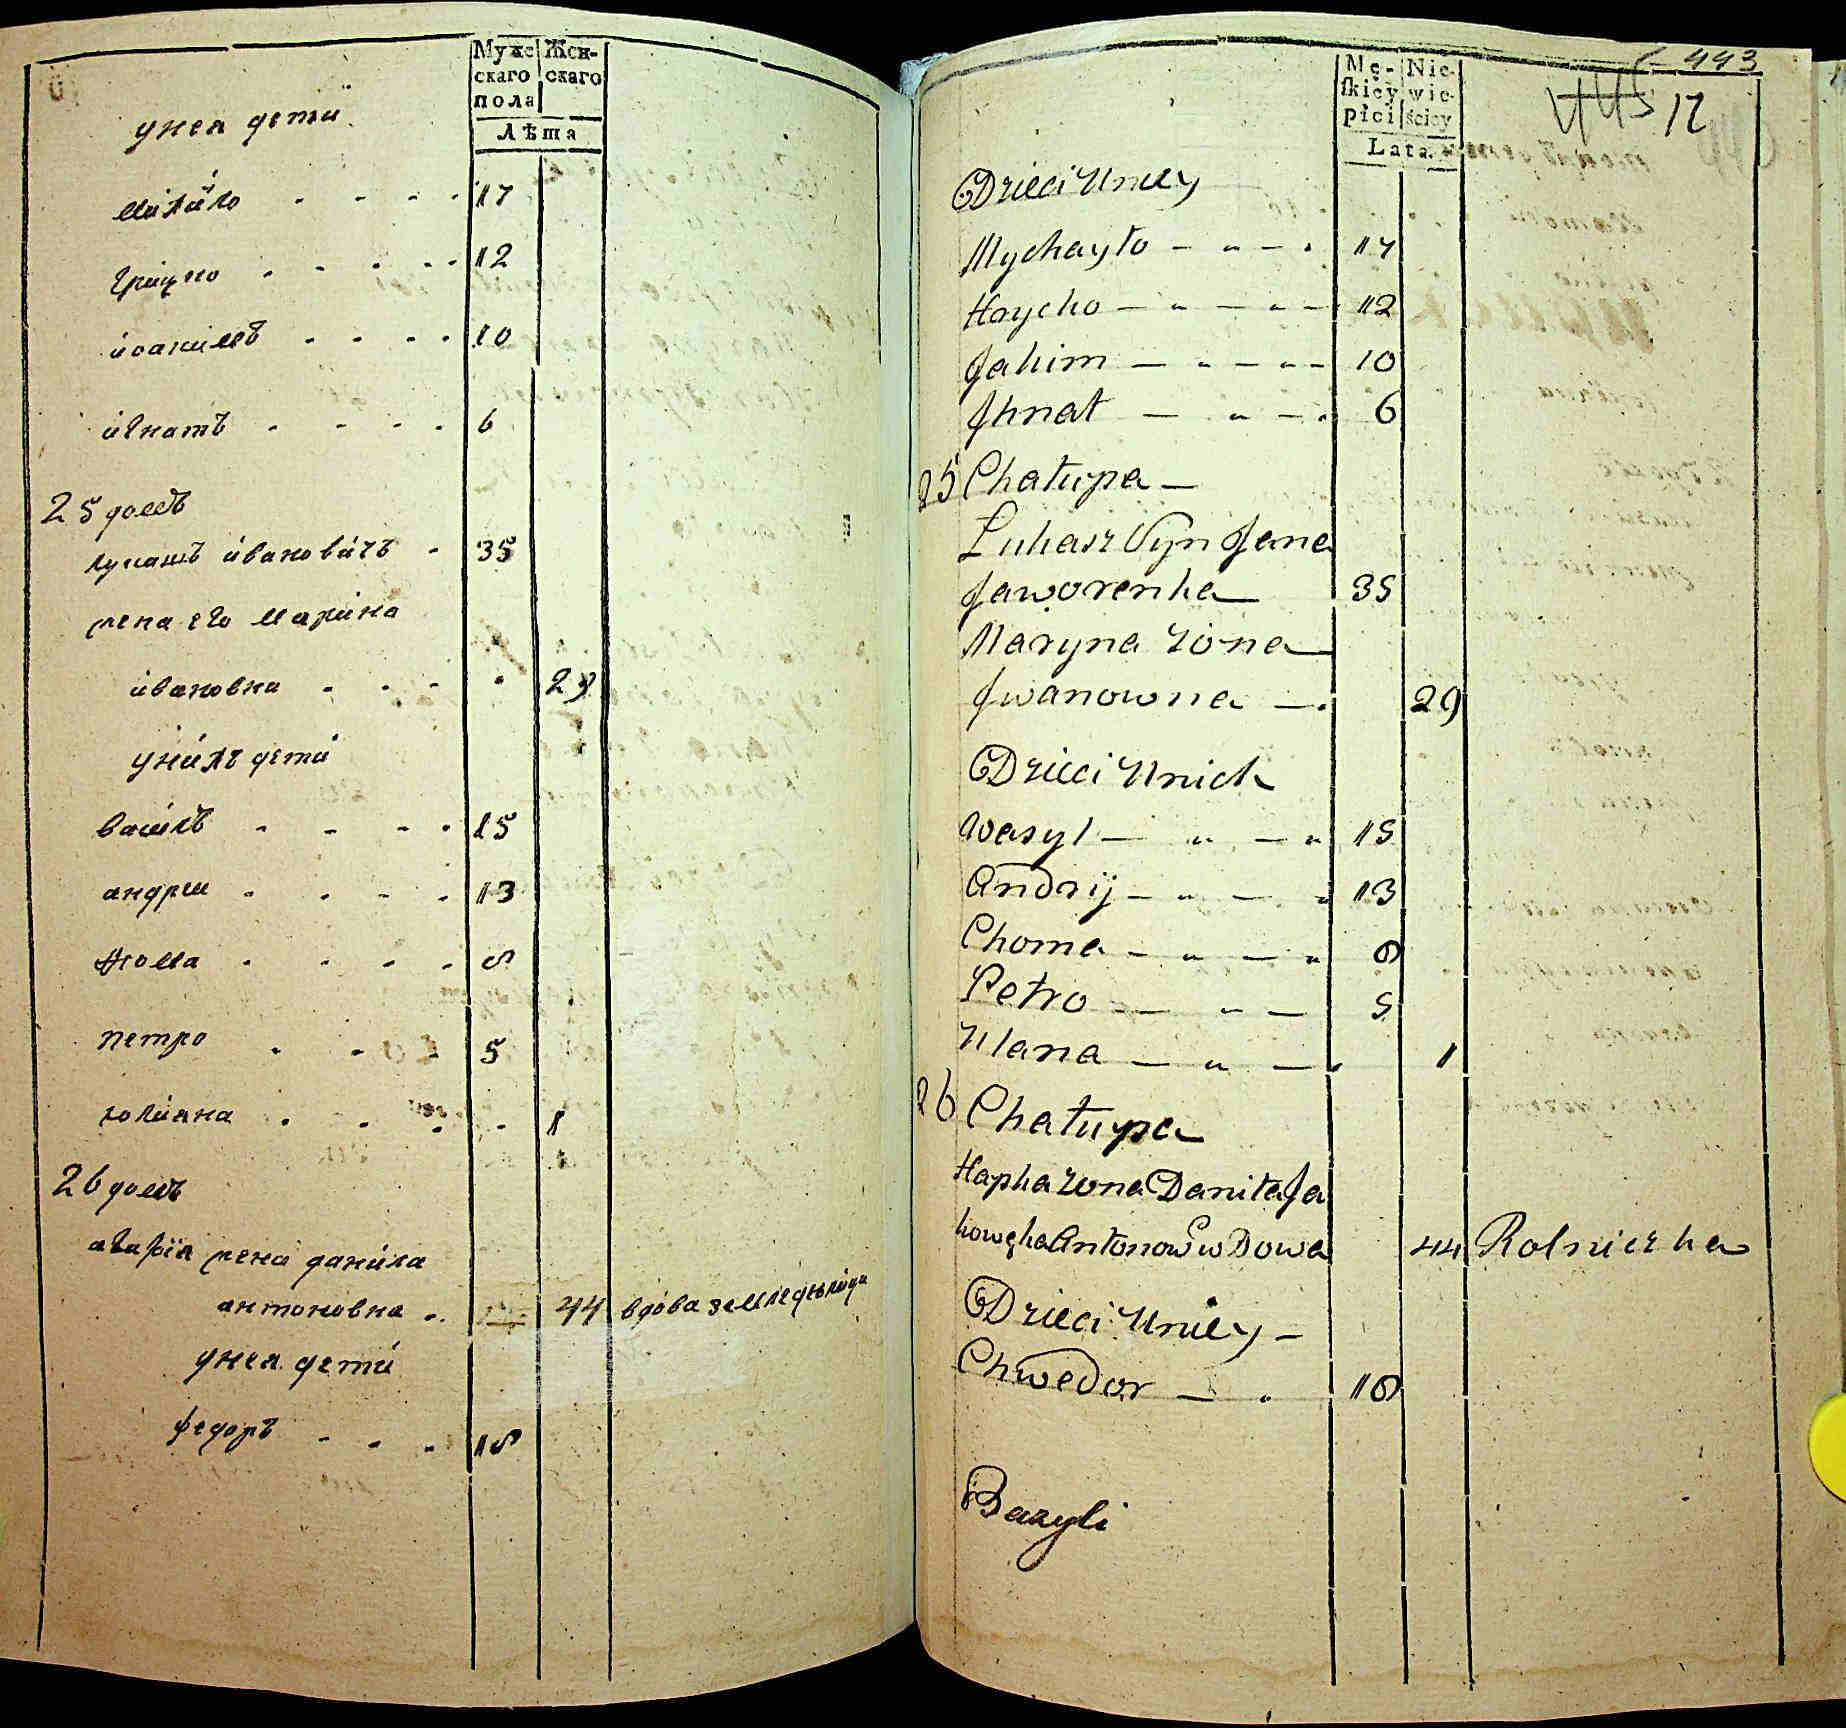 Муже Жен-
скаго скаго
пола
Лѣта
унея дети
михайло - - - - 17
грицко - - - - 12
иоакимъ - - - - 10
игнатъ - - - - 6
25 домъ
лукашъ ивановичъ - 35
жена его марина
ивановна - - - - 29
унихъ дети
василь - - - - 15
андрей - - - - 13
хома - - - - 8
петро - - - 5
юлияна - - - - 1
26 домъ
агафия жена данила
антоновна - 44 вдова земледелица
унея дети
федоръ - - - 18
443
445 12
Mę- Nie-
skiey wie-
płci ściey
Lata.
Dzieci Uniey
Mychayło - „ - . 17
Hrycko - „ - „ - 12
Jakim - „ - „ - 10
Jhnat - „ - . 6
25 Chałupa -
Łukasz Syn Jana
Jaworenka 35
Maryna żona
Jwanowna - . 29
Dzieci Unich
Wasyl - „ - „ 15
Andrij - „ - „ 13
Choma - „ - „ 8
Petro - „ - 5
Ulana - „ - . 1
26 Chałupa
Hapka żona Daniła Ja
Antonow wdowa 44 Rolniczka
Dzieci Uniey -
Chwedor - . 18
Bazyli